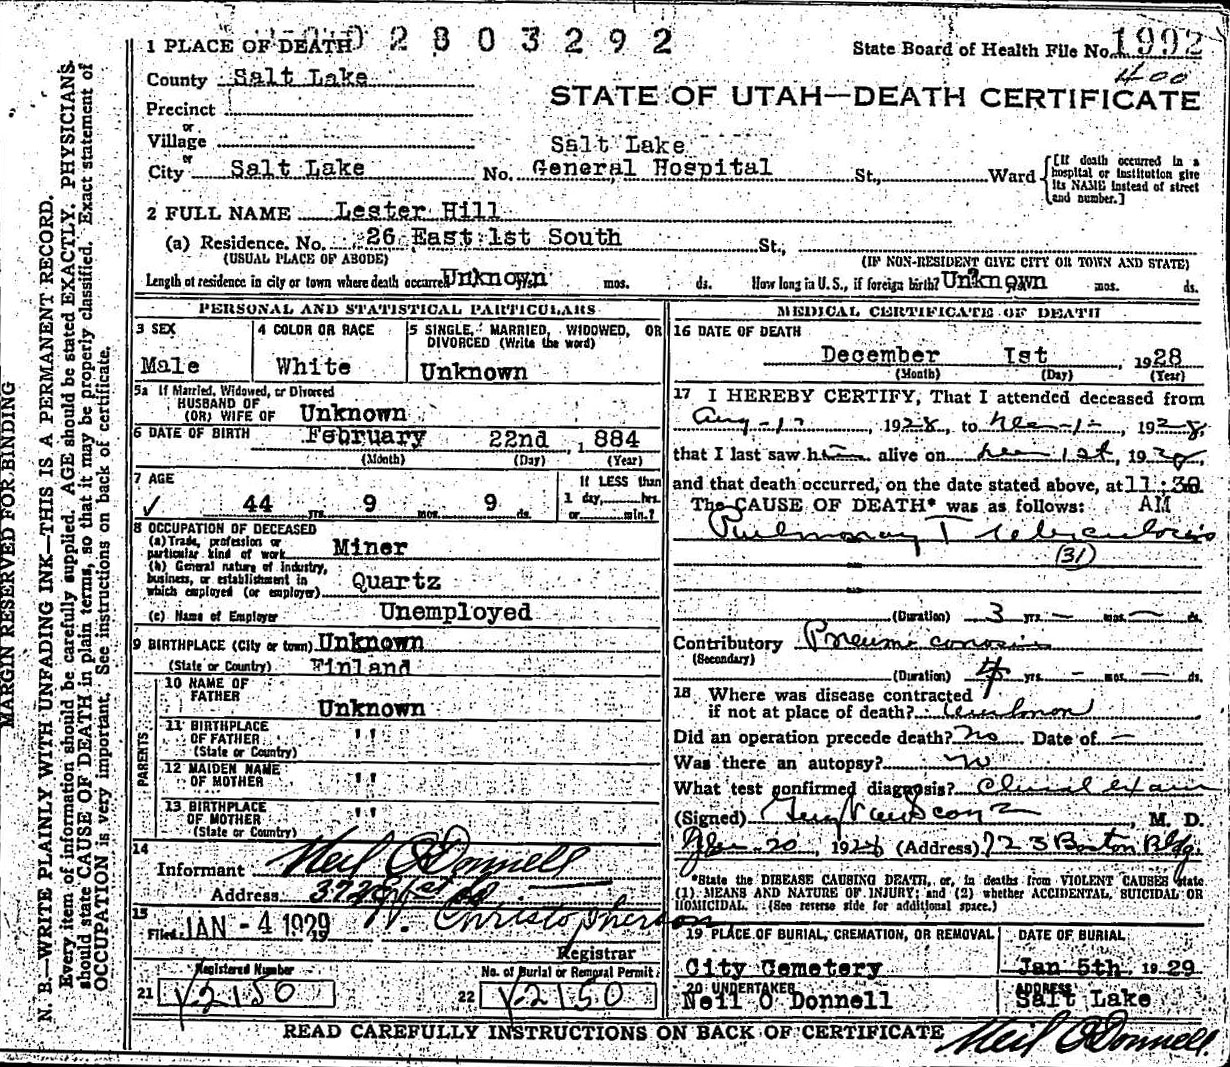 1 PLACE OF DEATH 02803292
State Board of Health File No. 1992
400
County Salt Lake
STATE OF UTAH—DEATH CERTIFICATE
Precinct
or
Village
or
City Salt Lake No. Salt Lake General Hospital St., Ward
[If death occurred in a hospital or institution give its NAME instead of street and number.]
2 FULL NAME Lester Hill
(a) Residence. No. 26 East 1st South St.,
(USUAL PLACE OF ABODE) (IF NON-RESIDENT GIVE CITY OR TOWN AND STATE)
Length of residence in city or town where death occurred Unknown yrs. mos. ds. How long in U. S., if foreign birth? Unknown yrs. mos. ds.
PERSONAL AND STATISTICAL PARTICULARS
3 SEX
Male
4 COLOR OR RACE
White
5 SINGLE, MARRIED, WIDOWED, OR
DIVORCED (Write the word)
Unknown
5a If Married, Widowed, or Divorced
HUSBAND OF
(OR) WIFE OF Unknown
6 DATE OF BIRTH February 22nd, 1884
(Month) (Day) (Year)
7 AGE
✓ 44 yrs. 9 mos. 9 ds.
If LESS than
1 day, hrs.
or min.?
8 OCCUPATION OF DECEASED
(a) Trade, profession or
particular kind of work Miner
(b) General nature of industry,
business, or establishment in
which employed (or employer) Quartz
(c) Name of Employer Unemployed
9 BIRTHPLACE (City or town) Unknown
(State or Country) Finland
PARENTS
10 NAME OF
FATHER
Unknown
11 BIRTHPLACE
OF FATHER " "
(State or Country)
12 MAIDEN NAME
OF MOTHER " "
13 BIRTHPLACE
OF MOTHER " "
(State or Country)
14
Informant Neil O'Donnell
Address
15
Filed JAN -4 1929 Christopherson
Registrar
Registered Number
21 Y-2150
No. of Burial or Removal Permit
22 Y-2150
MEDICAL CERTIFICATE OF DEATH
16 DATE OF DEATH
December 1st 1928
(Month) (Day) (Year)
17 I HEREBY CERTIFY, That I attended deceased from
Aug , 1928, to , 1928,
that I last saw him alive on 1st, 19
and that death occurred, on the date stated above, at 11:30
The CAUSE OF DEATH* was as follows: AM
Pulmonary Tuberculosis
(31)
(Duration) 3 yrs. — mos. — ds.
Contributory
(Secondary)
(Duration) 4 yrs. — mos. — ds.
18 Where was disease contracted
if not at place of death? unknown
Did an operation precede death? no Date of —
Was there an autopsy? no
What test confirmed diagnosis? Clinical exam
(Signed) M. D.
20, 1928 (Address) 723 Boston Bldg.
*State the DISEASE CAUSING DEATH, or, in deaths from VIOLENT CAUSES state
(1) MEANS AND NATURE OF INJURY; and (2) whether ACCIDENTAL, SUICIDAL OR
HOMICIDAL. (See reverse side for additional space.)
19 PLACE OF BURIAL, CREMATION, OR REMOVAL
City Cemetery
DATE OF BURIAL
Jan 5th 1929
20 UNDERTAKER
Neil O Donnell
ADDRESS
Salt Lake
READ CAREFULLY INSTRUCTIONS ON BACK OF CERTIFICATE
Neil O'Donnell
MARGIN RESERVED FOR BINDING
N. B.—WRITE PLAINLY WITH UNFADING INK—THIS IS A PERMANENT RECORD.
Every item of information should be carefully supplied. AGE should be stated EXACTLY. PHYSICIANS
should state CAUSE OF DEATH in plain terms, so that it may be properly classified. Exact statement of
OCCUPATION is very important. See instructions on back of certificate.